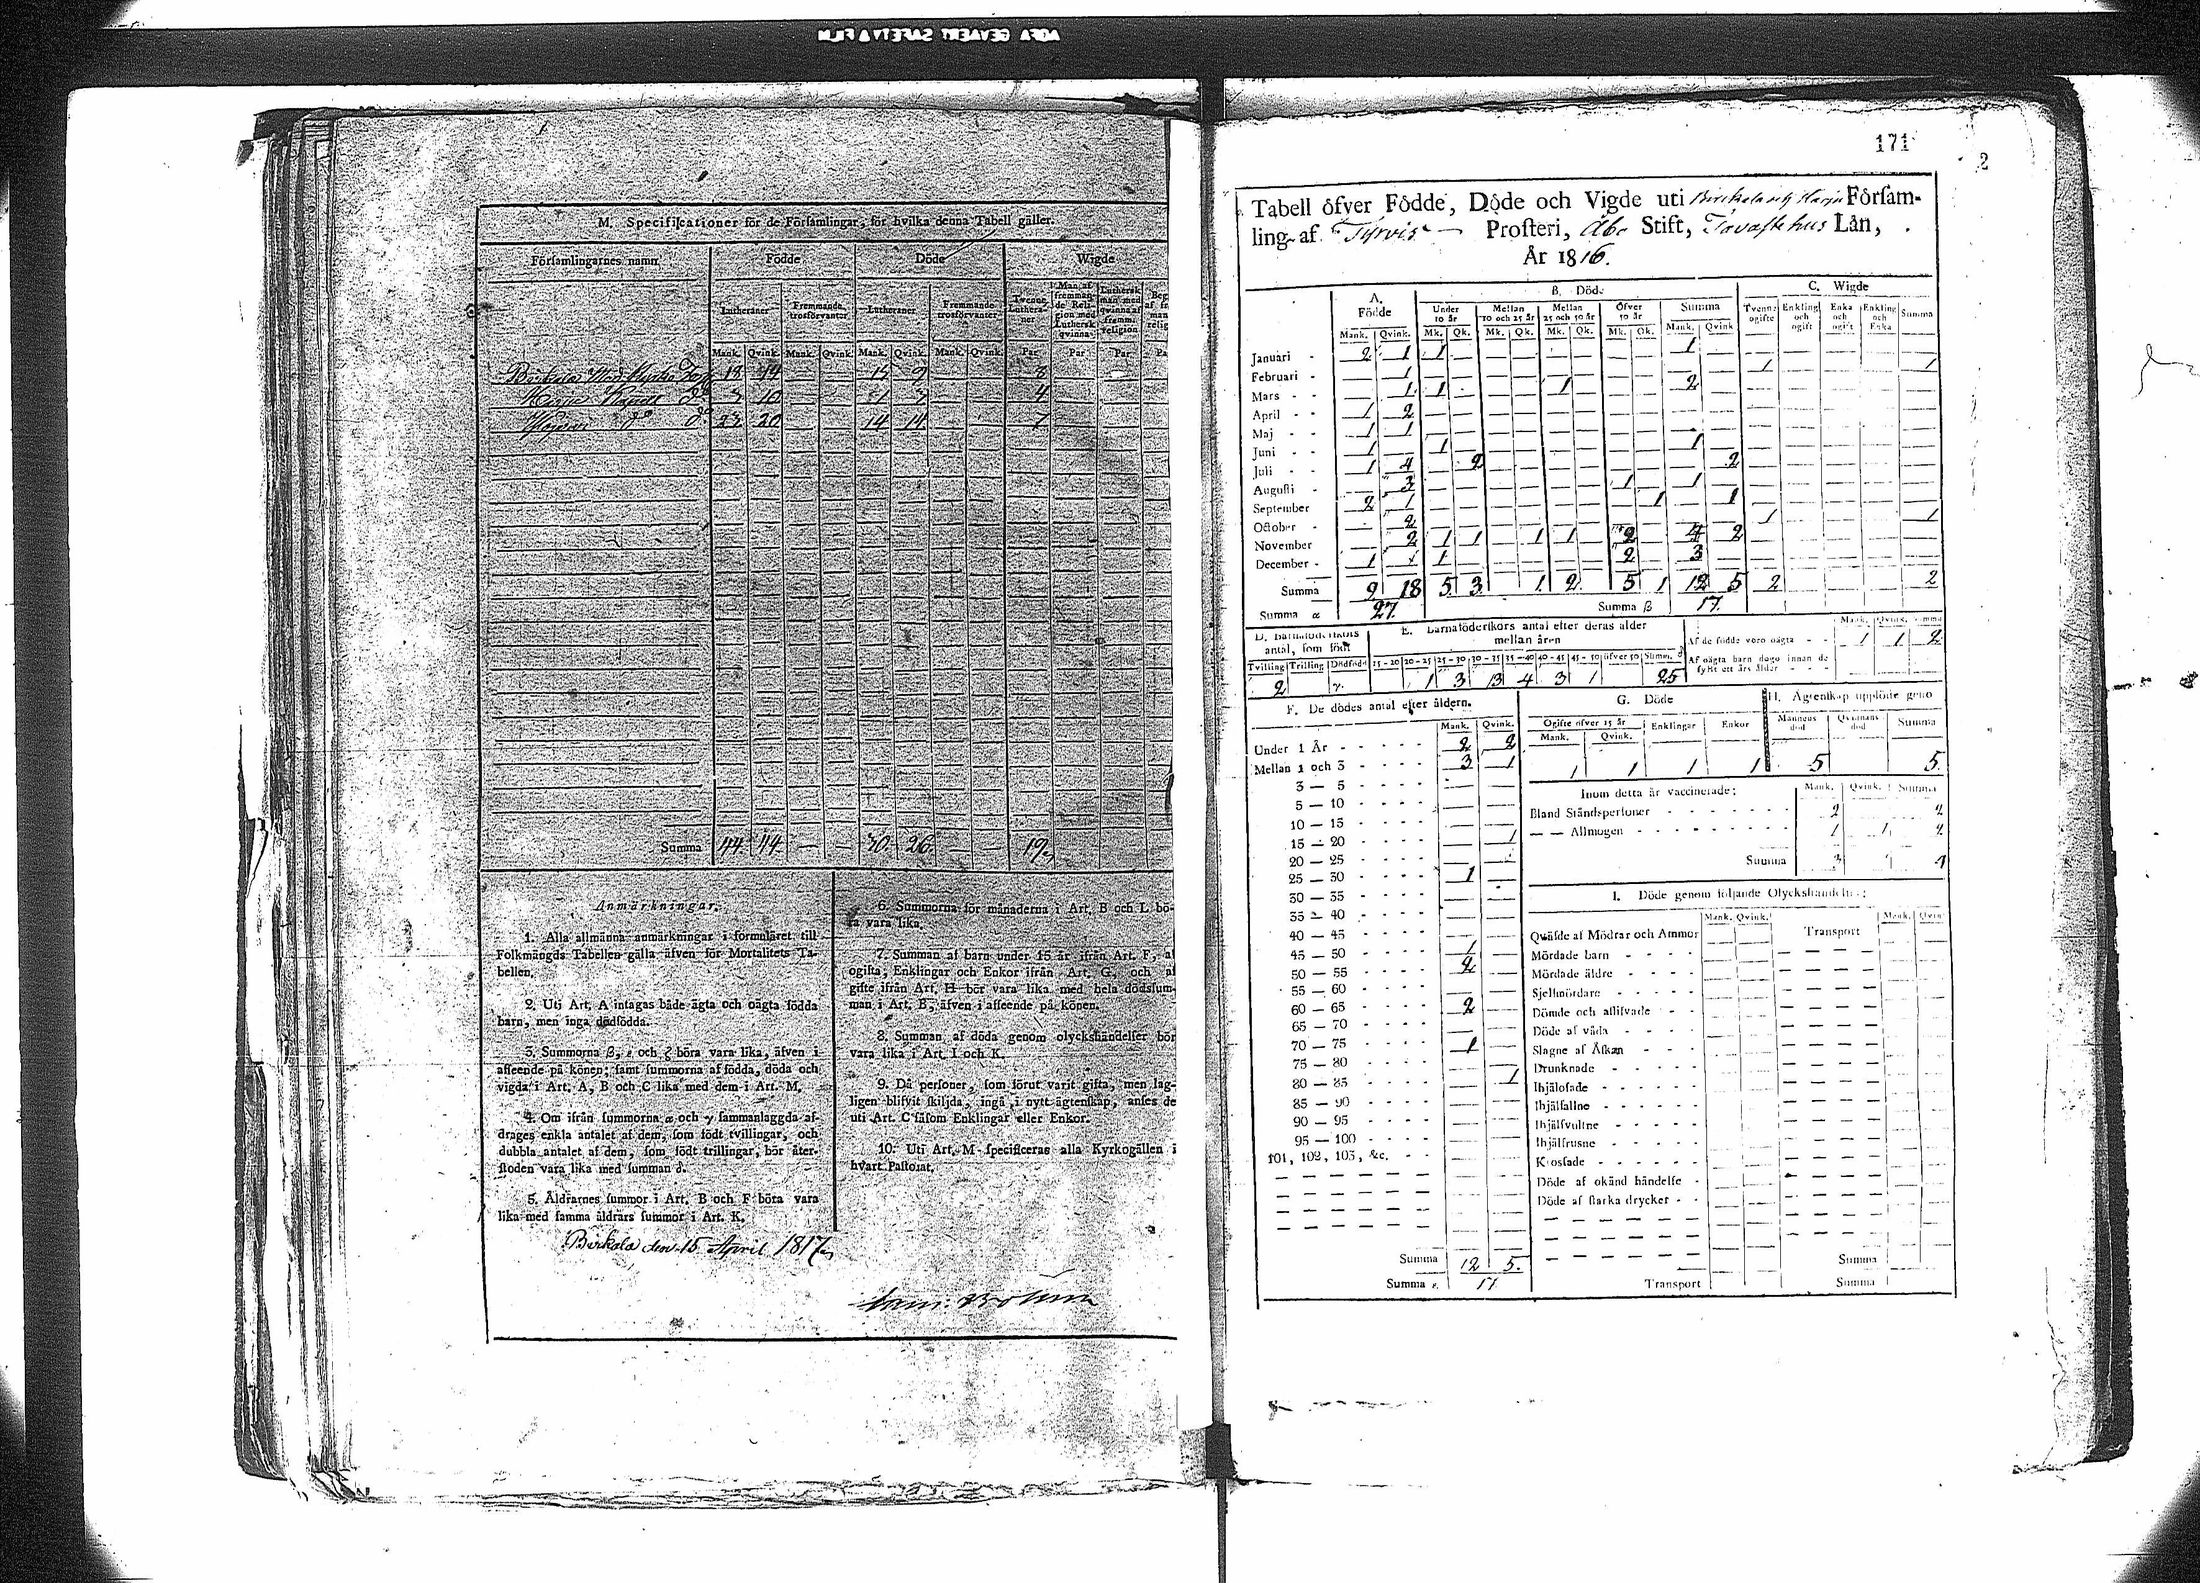 AGFA GEVAERT SAFETY FILM
M. Specificationer för de Församlingar, för hvilka denna Tabell gäller.
Församlingarnes namn. Födde Döde Wigde
Lutheraner Fremmande trosförvanter Lutheraner Fremmande trosförvanter Tvenne Lutheraner Man af fremmande Religion med Luthersk qvinna Luthersk man med qvinna af fremm. religion
Mank. Qvink. Mank. Qvink. Mank. Qvink. Mank. Qvink. Par Par Par Pa
Birkala Mod. Kyrko 18 14 — — 15 9 — — 8
Harju Capell d:o 3 10 — — 1 — — 4
d:o d:o 23 20 — — 14 14 — — 7
Summa 44 44 — — 30 26 — — 19
Anmärkningar.
1. Alla allmänna anmärkningar i formuläret till
Folkmängds Tabellen gälla äfven för Mortalitets Ta-
bellen.
2. Uti Art. A intagas både ägta och oägta födda
barn, men inga dödfödda.
3. Summorna β, ε och ζ böra vara lika, äfven i
afseende på könen; samt summorna af födda, döda och
vigda i Art. A, B och C lika med dem i Art. M.
4. Om ifrån summorna α och γ sammanlaggda af-
drages enkla antalet af dem, som födt tvillingar, och
dubbla antalet af dem, som födt trillingar, bör åter-
stoden vara lika med summan δ.
5. Åldrarnes summor i Art. B och F böra vara
lika med samma åldrars summor i Art. K.
6. Summorna för månaderna i Art. B och L bö-
ra vara lika.
7. Summan af barn under 15 år ifrån Art. F, af
ogifta, Enklingar och Enkor ifrån Art. G, och af
gifte ifrån Art. H bör vara lika med hela dödssum-
man i Art. B, äfven i afseende på könen.
8. Summan af döda genom olyckshändelser bör
vara lika i Art. I och K.
9. Då personer, som förut varit gifta, men lag-
ligen blifvit skiljda, ingå i nytt ägtenskap, anses de
uti Art. C såsom Enklingar eller Enkor.
10. Uti Art. M specificeras alla Kyrkogällen i
hvart Pastorat.
Birkala den 15 April 1817
171
2
Tabell öfver Födde, Döde och Vigde uti Birkala och Harju Försam-
ling af Tyrvis Prosteri, Åbo Stift, Tavastehus Län,
År 1816.
A. Födde B. Döde C. Wigde
Under 10 år Mellan 10 och 25 år Mellan 25 och 50 år Öfver 50 år Summa Tvenne ogifte Enkling och ogift Enka och ogift Enkling och Enka Summa
Mank. Qvink. Mk. Qk. Mk. Qk. Mk. Qk. Mk. Qk. Mank. Qvink
Januari - 2 1 1 — — — — — — — 1 —
Februari - — 1 — — — — — — — — — — 1 — — — 1
Mars - - — 1 1 — — — 1 — — — 2 —
April - - 1 2
Maj - - 1 1
Juni - - 1 — 1 — — — — — — — 1 —
Juli - - 1 4 — 2 — — — — — — — 2
Augusti - — 3 — — — — — — 1 — 1 —
September 2 1 — — — — — — — 1 — 1
October - — 2 — — — — — — — — — — 1 — — — 1
November — 2 1 1 — 1 1 — 2 — 4 2
December - 1 — 1 — — — — — 2 — 3 —
Summa 9 18 5 3 1 2 5 1 12 5 2 — — — 2
Summa α 27. Summa β 17.
D. Barnaföderskors antal, som födt
E. Barnaföderskors antal efter deras ålder mellan åren
Mank. Qvink. Summa
Tvilling Trilling Dödfödd 15 – 20 20 – 25 25 – 30 30 – 35 35 – 40 40 – 45 45 – 50 öfver 50 Summ. δ
2 γ. 1 3 13 4 3 1 25
Af de födde voro oägta - - 1 1 2
Af oägta barn dogo innan de
fyllt ett års ålder - - -
F. De dödes antal efter åldern.
Mank. Qvink.
Under 1 År - - - - - 2 2
Mellan 1 och 3 - - - - 3 1
3 — 5 - - - -
5 — 10 - - - -
10 — 15 - - - -
15 — 20 - - - - — 1
20 — 25 - - - -
25 — 30 - - - - 1 —
30 — 35 - - - -
35 — 40 - - - -
40 — 45 - - - -
45 — 50 - - - - 1 —
50 — 55 - - - - 2 —
55 — 60 - - - -
60 — 65 - - - - 2 —
65 — 70 - - - -
70 — 75 - - - - 1 —
75 — 80 - - - -
80 — 85 - - - - — 1
85 — 90 - - - -
90 — 95 - - - -
95 — 100 - - - -
101, 102, 103, &c. - -
Summa 12 5.
Summa ε. 17
G. Döde
Ogifte öfver 15 år Enklingar Enkor
Mank. Qvink.
1 1 1 1
H. Ägtenskap upplöste geno
Mannens död Qvinnans död Summa
5 5.
Inom detta år vaccinerade: Mank. Qvink. Summa
Bland Ståndspersoner - - - - - - 2 2
— — Allmogen - - - - - - - - 1 1 2
Summa 3 1 4
I. Döde genom följande Olyckshändelser:
Mank. Qvink. Mank. Qvin
Quäfde af Mödrar och Ammor Transport
Mördade barn - - - -
Mördade äldre - - - -
Sjelfmördare - - - - -
Dömde och aflifvade - -
Döde af våda - - - -
Slagne af Åskan - - -
Drunknade - - - - -
Ihjälosade - - - - -
Ihjälfallne - - - - -
Ihjälsvultne - - - - -
Ihjälfrusne - - - - -
Krossade - - - - - -
Döde af okänd händelse -
Döde af starka drycker - -
Summa
Transport Summa